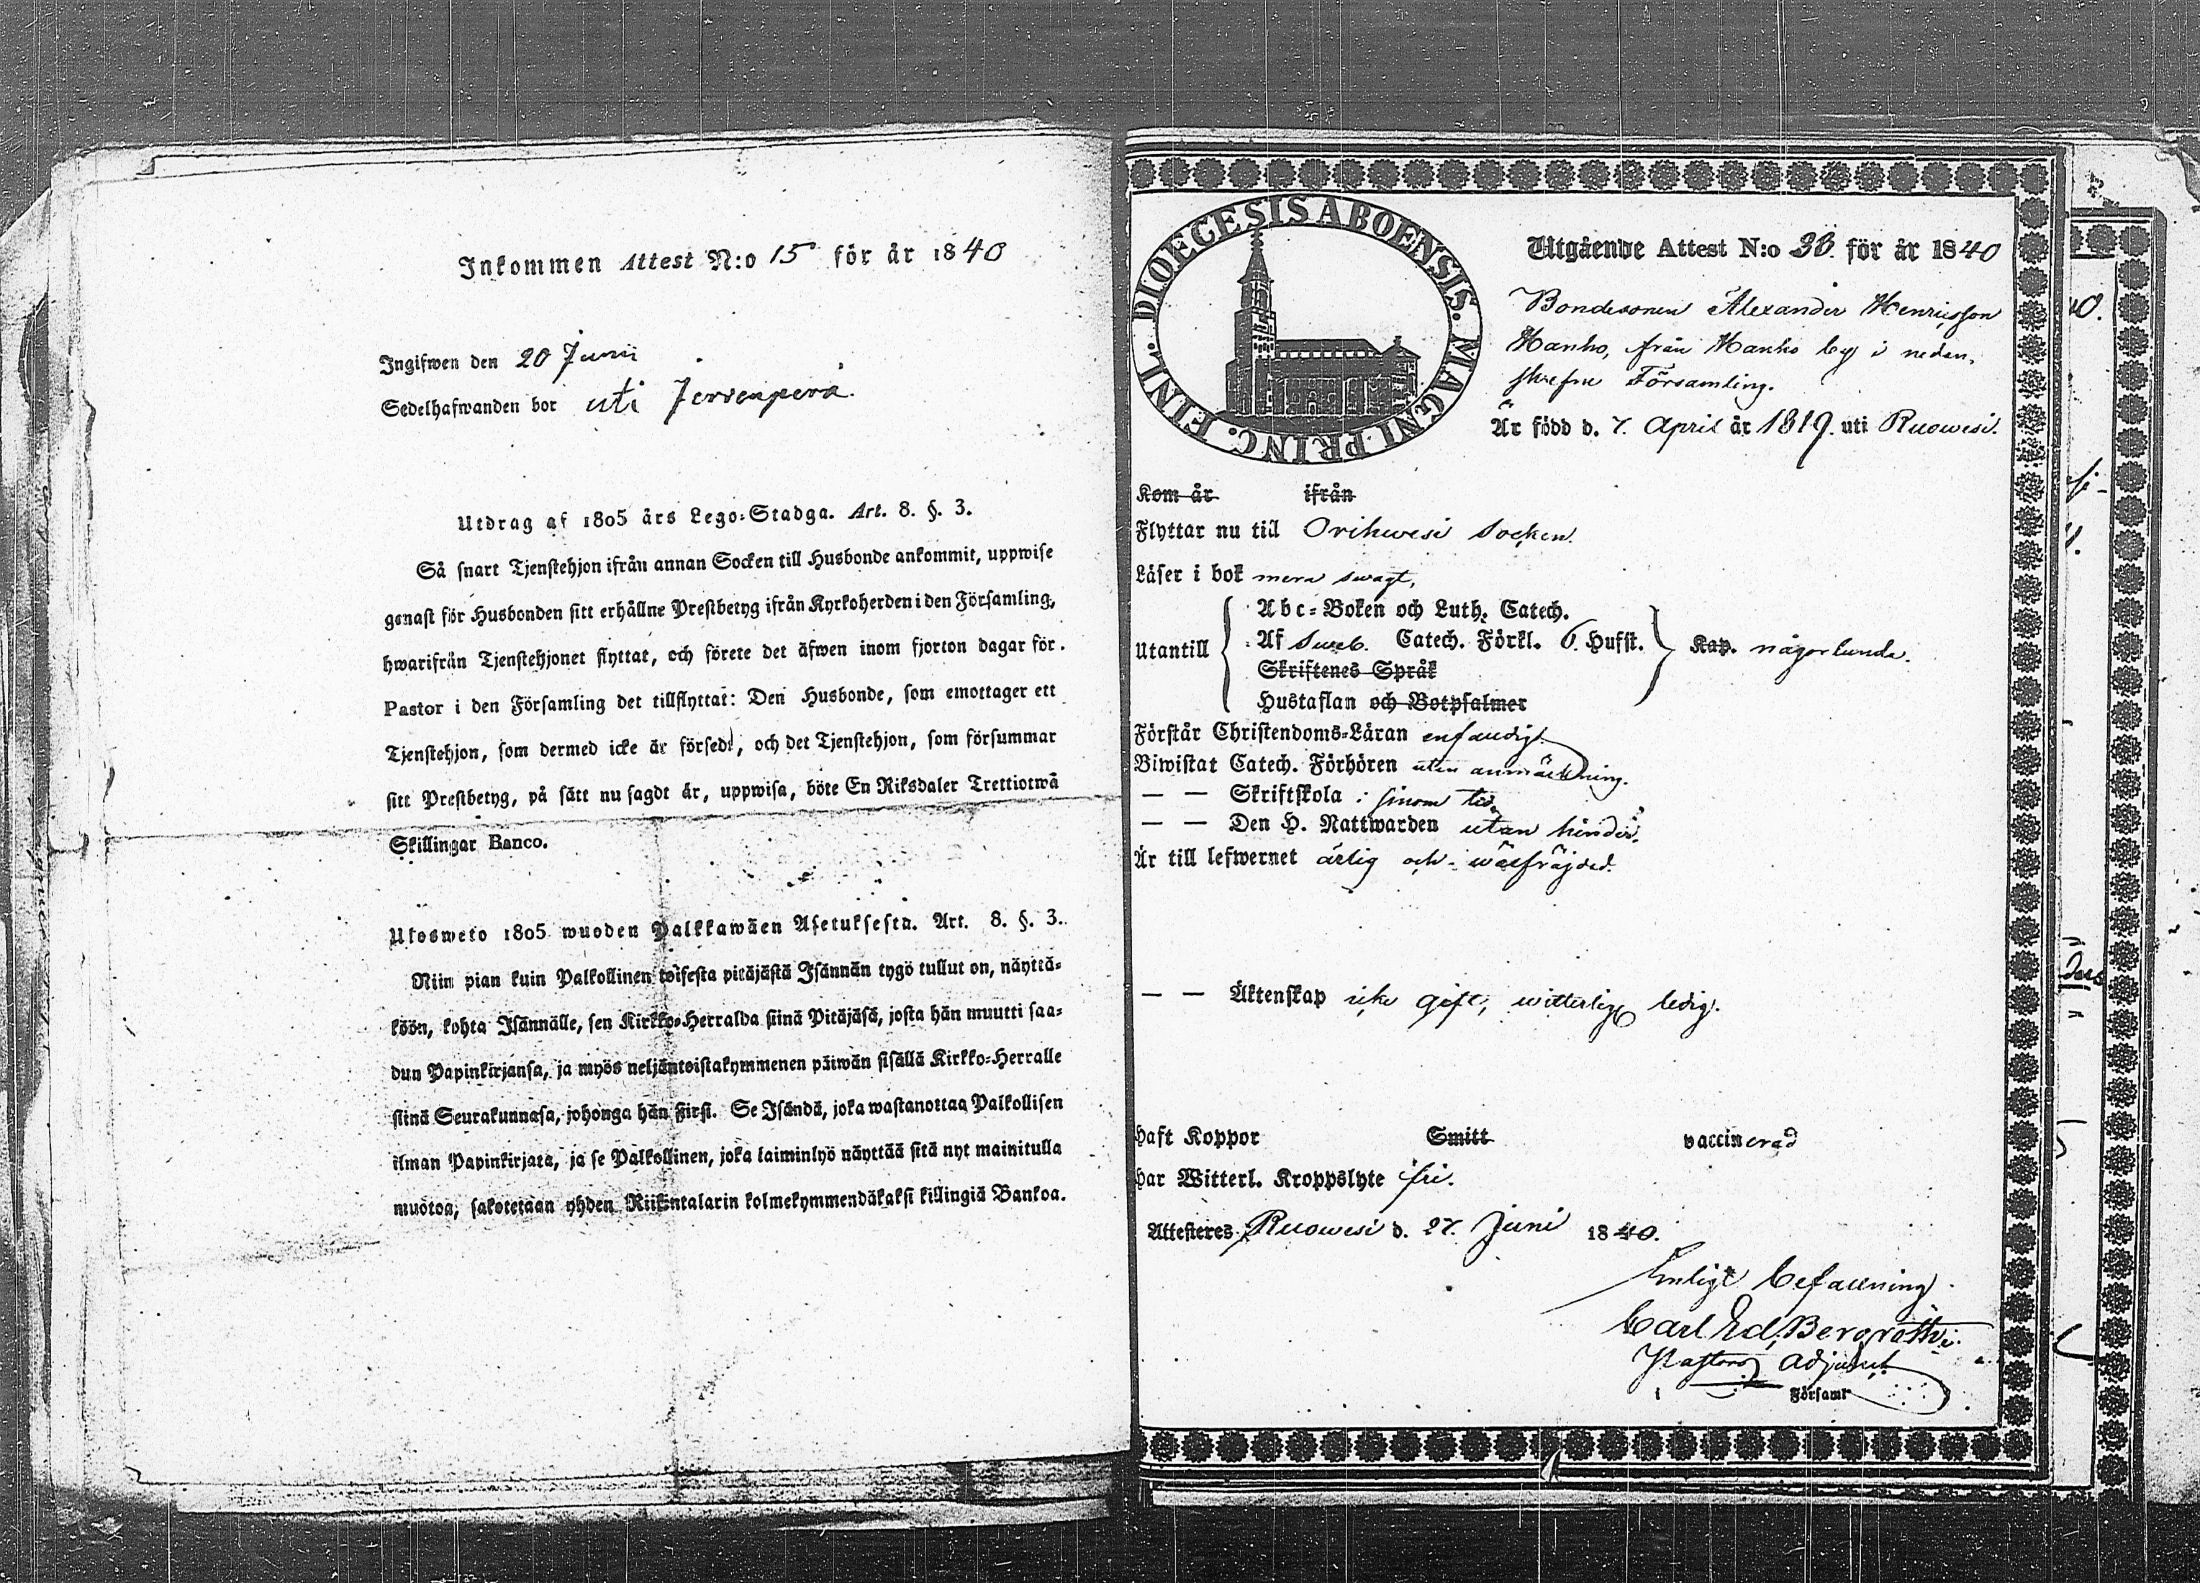 Inkommen Attest N:o 15 för år 1840
Ingifwen den 20 Junii
Sedelhafwanden bor uti Jervenperä
Utdrag af 1805 års Lego-Stadga. Art. 8. §. 3.
Så snart Tjenstehjon ifrån annan Socken till Husbonde ankommit, uppwise
genast för Husbonden sitt erhållne Prestbetyg ifrån Kyrkoherden i den Församling,
hwarifrån Tjenstehjonet flyttat, och förete det äfwen inom fjorton dagar för
Pastor i den Församling det tillflyttat: Den Husbonde, som emottager ett
Tjenstehjon, som dermed icke är försedt, och det Tjenstehjon, som försummar
sitt Prestbetyg, på sätt nu sagdt är, uppwisa, böte En Riksdaler Trettiotwå
Skillingar Banco.
Ulosweto 1805 wuoden Palkkawäen Asetuksesta. Art. 8. §. 3.
Niin pian kuin Palkollinen toisesta pitäjästä Isännän tygö tullut on, näyttä-
köön, kohta Isännälle, sen Kirkko-Herralda siinä Pitäjäsä, josta hän muutti saa-
dun Papinkirjansa, ja myös neljäntoistakymmenen päiwän sisällä Kirkko-Herralle
siinä Seurakunnasa, johonga hän siirsi. Se Isändä, joka wastanottaa Palkollisen
ilman Papinkirjata, ja se Palkollinen, joka laiminlyö näyttää sitä nyt mainitulla
muotoa, sakotetaan yhden Riikintalarin kolmekymmendäkaksi killingiä Bankoa.
DIOECESIS ABOENSIS. MAGNI PRINC. FINL.
Utgående Attest N:o 36. för år 1840
Bondesonen Alexander Henricsson
Hanho, från Hanho by i nedan-
skrefne Församling.
Är född d. 7. April år 1819. uti Ruowesi.
Kom år ifrån
Flyttar nu till Orihwesi Socken.
Läser i bok mera swagt,
Utantill
Abc-Boken och Luth. Catech.
Af Sweb. Catech. Förkl. 6. Hufst. Kap. någorlunda.
Skriftenes Språk
Hustaflan och Botpsalmer
Förstår Christendoms-Läran enfaldigt.
Biwistat Catech. Förhören utan anmärkning.
— — Skriftskola i sinom tid
— — Den H. Nattwarden utan hinder.
Är till lefwernet ärlig och wälfräjdad.
— — Äktenskap icke gift, witterligen ledig.
Haft Koppor Smitt vaccinerad
Har Witterl. Kroppslyte fri.
Attesteres Ruowesi d. 27. Juni 1840.
Enligt befallning
Carl Ed. Bergroth.
Pastors Adjunct
i Församl